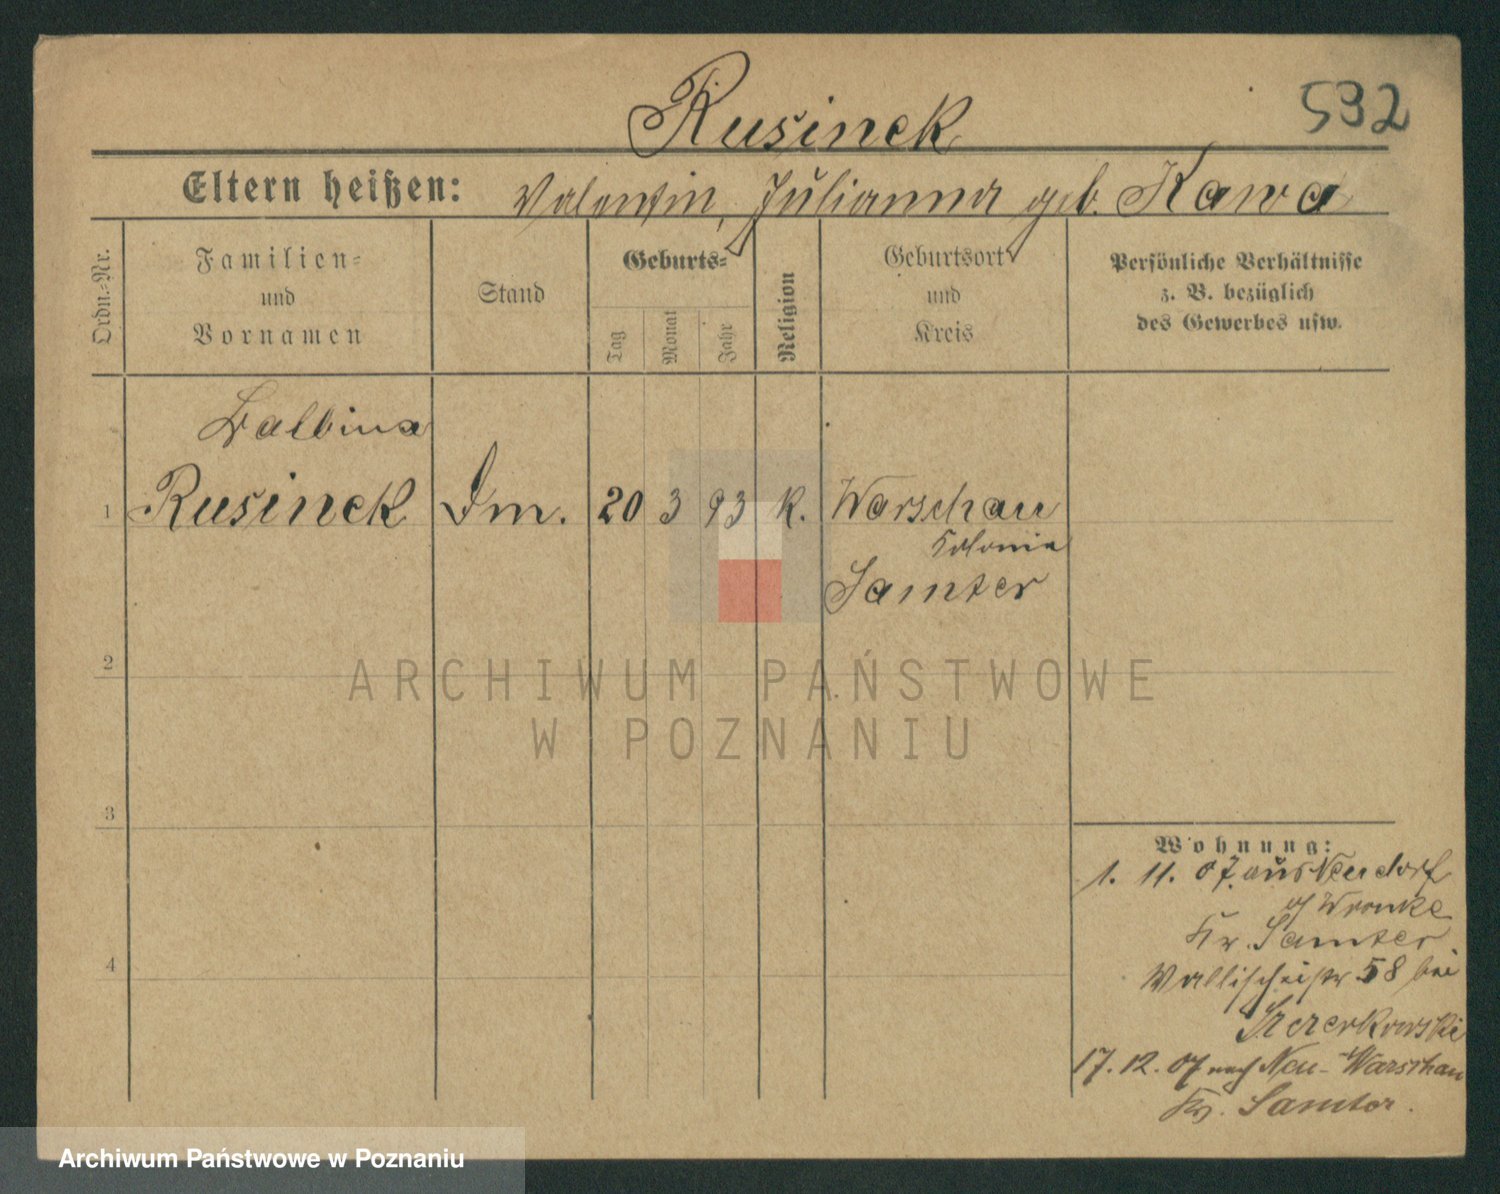 Rusinek
532
Eltern heißen: Valentin, Julianna geb. Kawa
Ordn.-Nr.
Familien-
und
Vornamen
Stand
Geburts-
Tag
Monat
Jahr
Religion
Geburtsort
und
Kreis
Persönliche Verhältnisse
z. B. bezüglich
des Gewerbes usw.
Balbina
1 Rusinek Dm. 20 3 93 k. Warschau
Kolonie
Samter
2
3
4
Wohnung:
1. 11. 07. aus Neudorf
Wronke
Kr. Samter.
Wallischeistr 58 bei
17. 12. 07 nach Neu-Warschau
Kr. Samter.
ARCHIWUM PAŃSTWOWE
W POZNANIU
Archiwum Państwowe w Poznaniu